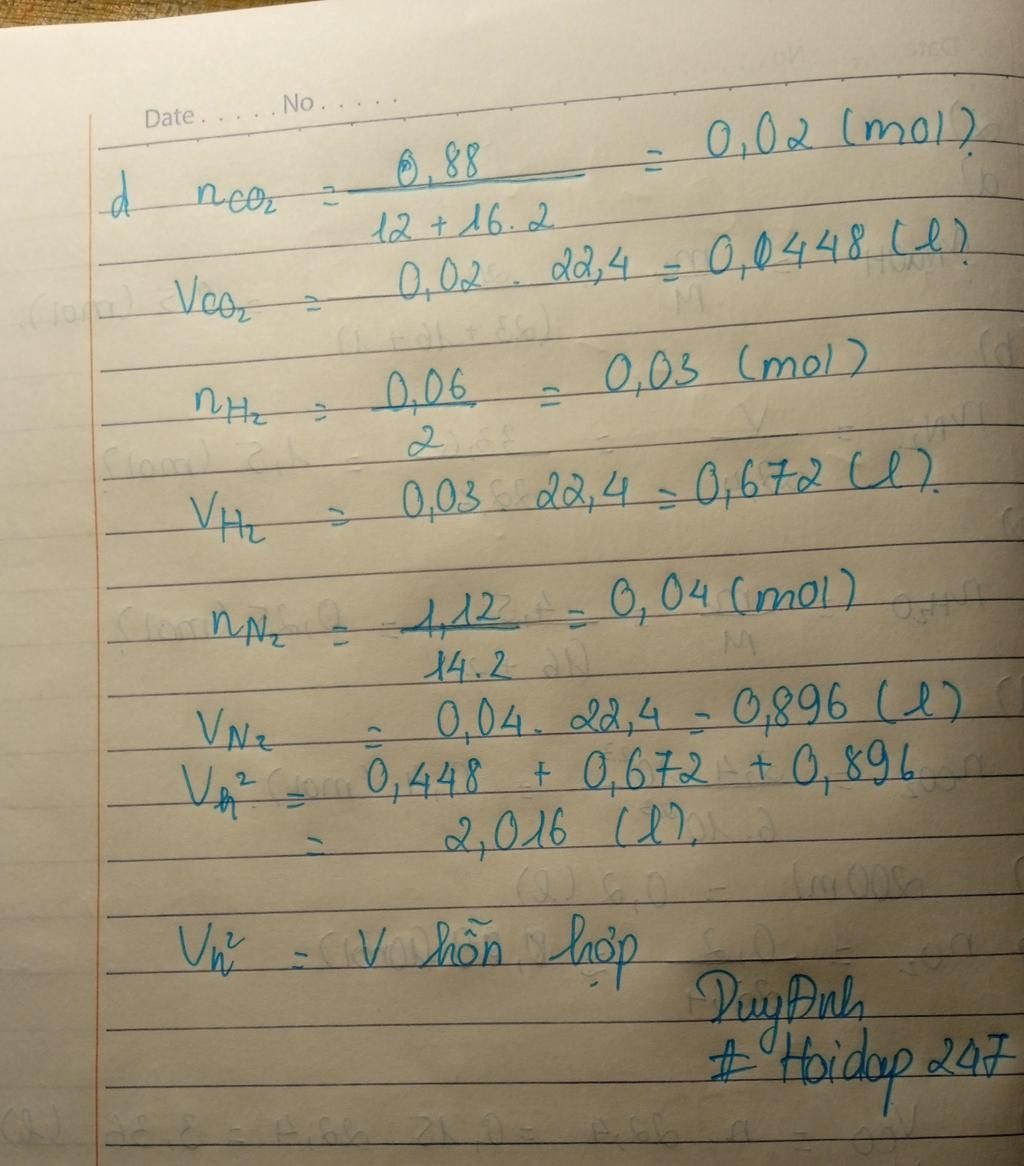 Date......No.....
d nCO₂ = 0,88 / 12 + 16.2 = 0,02 (mol)
VCO₂ = 0,02 . 22,4 = 0,0448 (l)
nH₂ = 0,06 / 2 = 0,03 (mol)
VH₂ = 0,03 22,4 = 0,672 (l).
nN₂ = 1,12 / 14.2 = 0,04 (mol)
VN₂ = 0,04 . 22,4 = 0,896 (l)
Vh² = 0,448 + 0,672 + 0,896
= 2,016 (l).
Vh² = V hỗn hợp
DuyAnh
# Hoidap 247